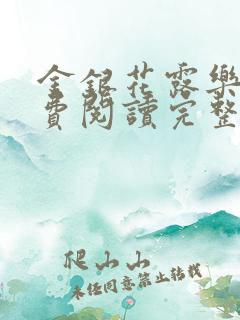 金銀花露樂
費閱讀完整
爬山山
未经同意禁止转载